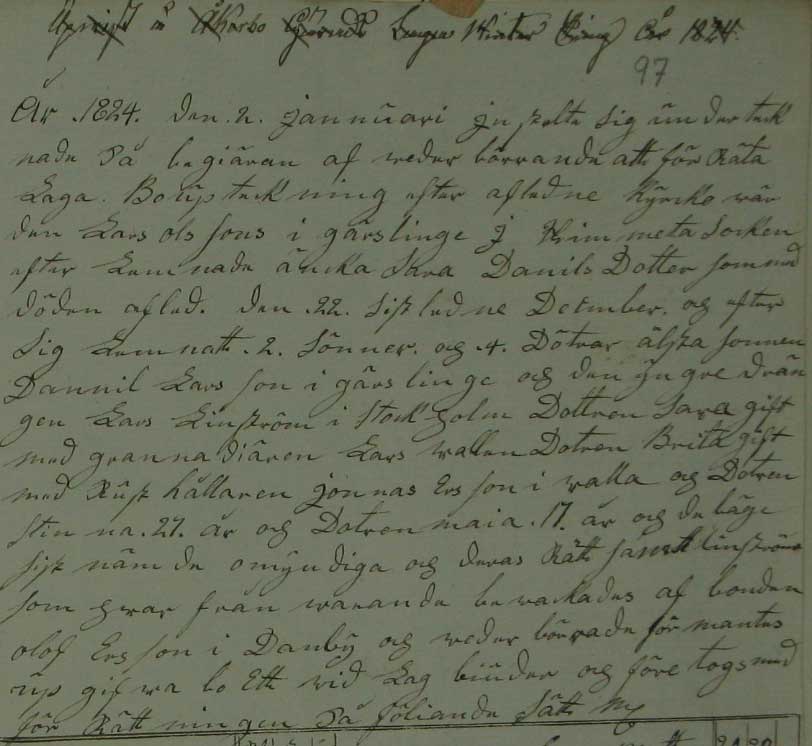 å Åkerbo Laga Winter Ting År 1824.
97
År .1824. den .2. jannuari jn stelte sig ünderteck
nade På begiäran af weder börrande att för Räta
Laga. Boüpteckning efter afledne Kyrcko wär
den Lars ols sons i gärslinge j Himmeta Socken
efter Lemnade äncka Sara Danils Dotter som med
döden afled. den .22. sistledne December. og efter
Sig Lemnatt .2. Sönner. og .4. Dötrar älsta sonnen
Dannil Lars son i gärslinge og den yngre drän
gen Lars Linström i Stockholm Dottren Sara gift
med grannadiären Lars wallen Dotren Brita gift
med Rüst hållaren jonnas Ers son i walla og Dotren
Stinna .21. år og Dotren maia .17. år og de bäge
sist nämde omyndiga og deras Rätt samt linströms
som hwar från warande bewackades af bonden
olof Ers son i Danby og weder börrade förmantes
üp gifwa bo Ett wid Lag biüder og före togs med
för Rättningen På följande Sätt